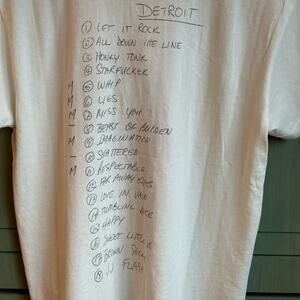 DETROIT
① LET IT ROCK
② ALL DOWN THE LINE
③ HONKY TONK
④ STARFUCKER
M ⑤ WHIP
M ⑥ LIES
M ⑦ MISS YOU
– ⑧ BEAST OF BURDEN
M ⑨ IMAGINATION
– ⑩ SHATTERED
M ⑪ RESPECTABLE
⑫ FAR AWAY EYES
⑬ LOVE IN VAIN
⑭ TUMBLING DICE
⑮ HAPPY
⑯ SWEET LITTLE
⑰ BROWN SUGAR
⑱ JJ FLASH